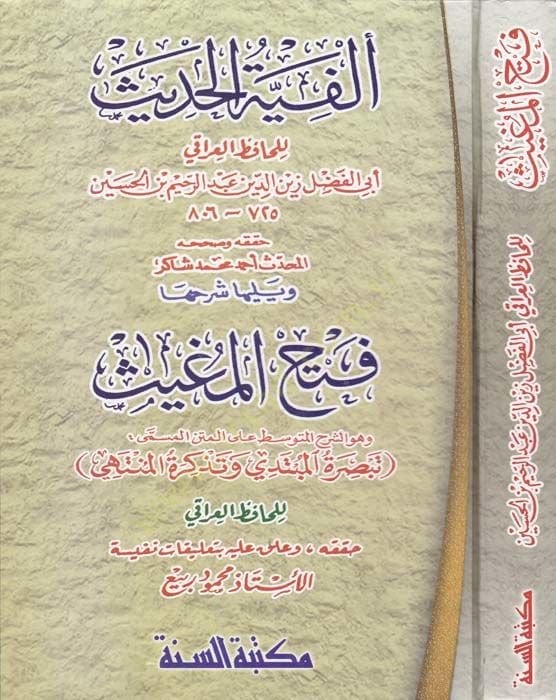 ألفية الحديث
للحافظ العراقي
أبي الفضل زين الدين عبد الرحيم بن الحسين
٧٢٥ - ٨٠٦
حققه وصححه
المحدث أحمد محمد شاكر
ويليها شرحها
فتح المغيث
وهو الشرح المتوسط على المتن المسمى :
( تبصرة المبتدي وتذكرة المنتهي )
للحافظ العراقي
حققه ، وعلق عليه بتعليقات نفيسة
الأستاذ محمود ربيع
مكتبة السنة
فتح المغيث
للحافظ العراقي أبي الفضل زين الدين عبد الرحيم بن الحسين
مكتبة السنة